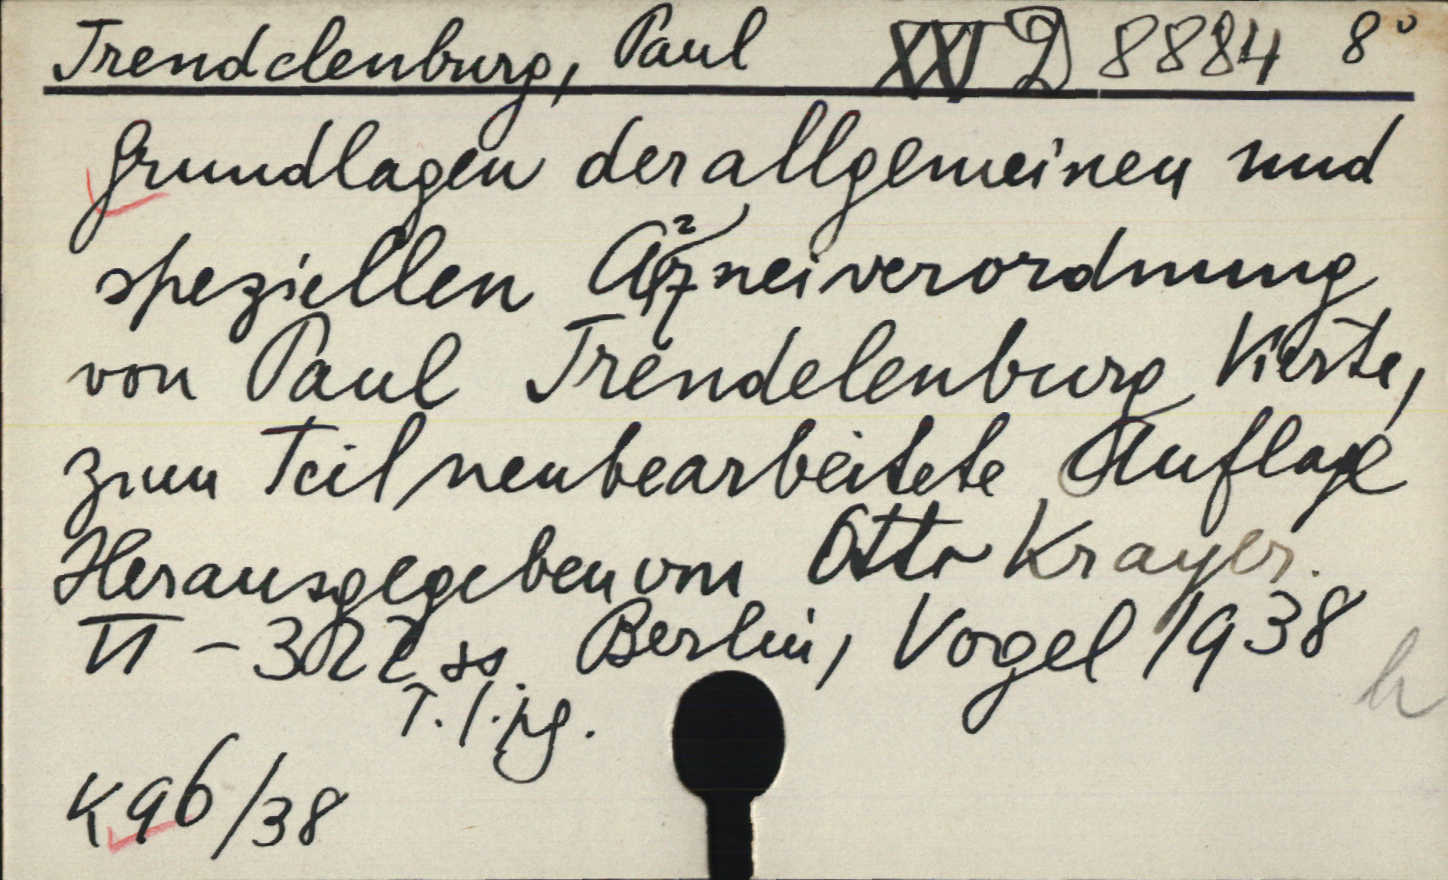 Trendelenburg, Paul XXI D 8884 8°
Grundlagen der allgemeinen und
speziellen Arzneiverordnung
von Paul Trendelenburg Vierte,
zum Teil neubearbeitete Auflage
Herausgegeben von Otto Krayer.
VI - 322 ss. Berlin, Vogel 1938
T. l. jg.
K 96/38
h